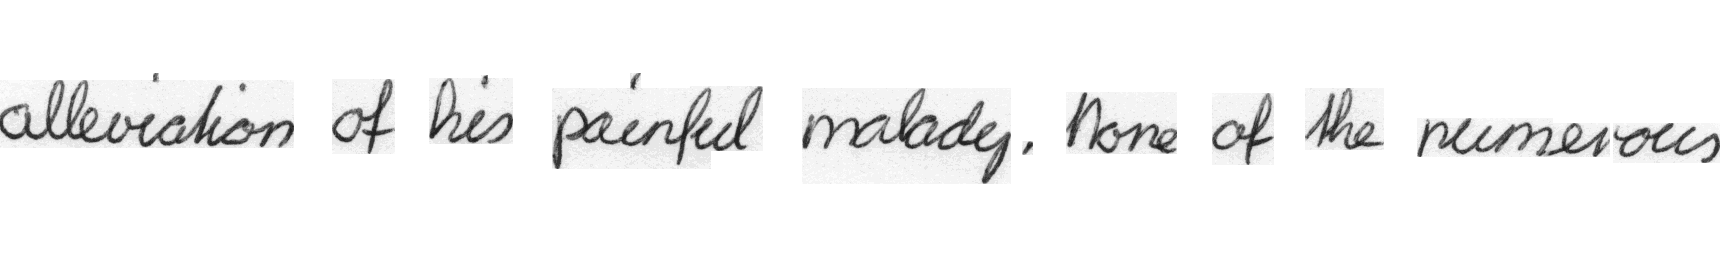 alleviation of his painful malady. None of the numerous